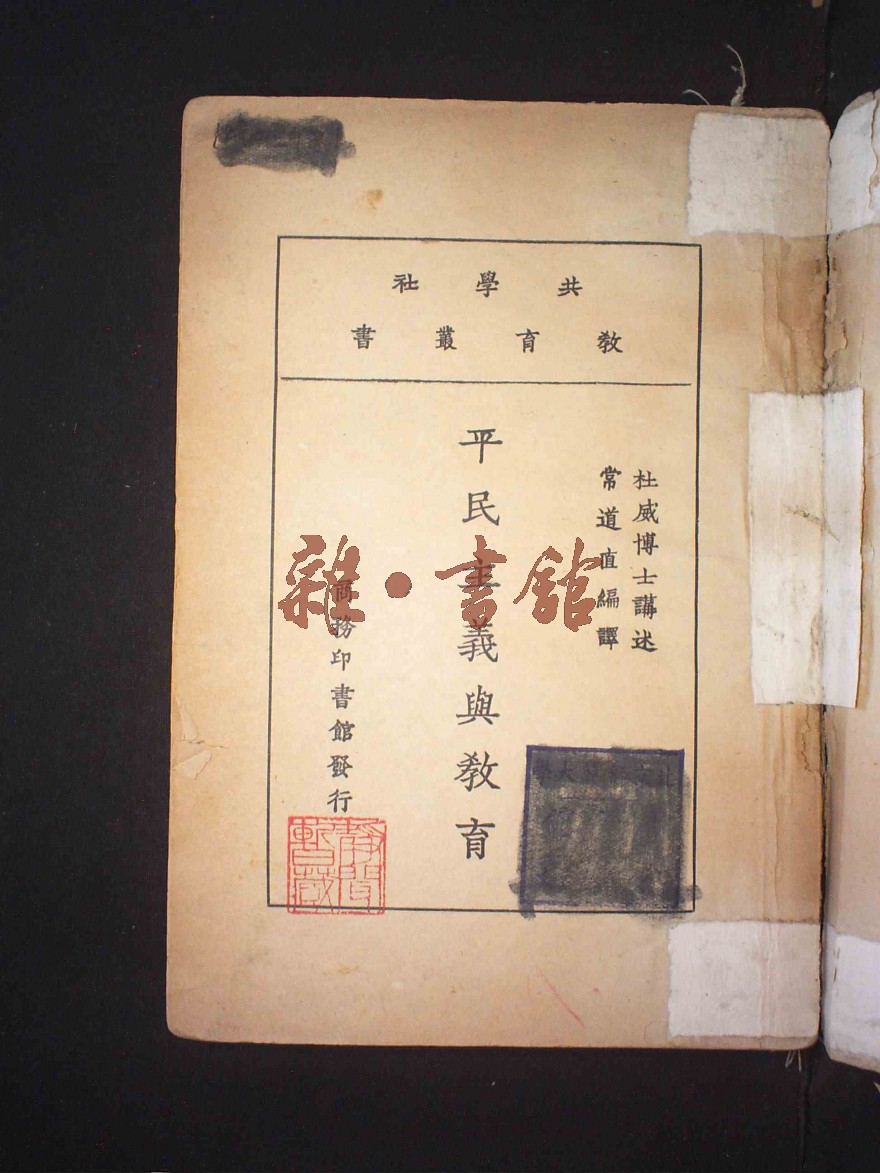 共學社
教育叢書
杜威博士講述
常道直編譯
平民主義與教育
商務印書館發行
雜·書館
暫藏